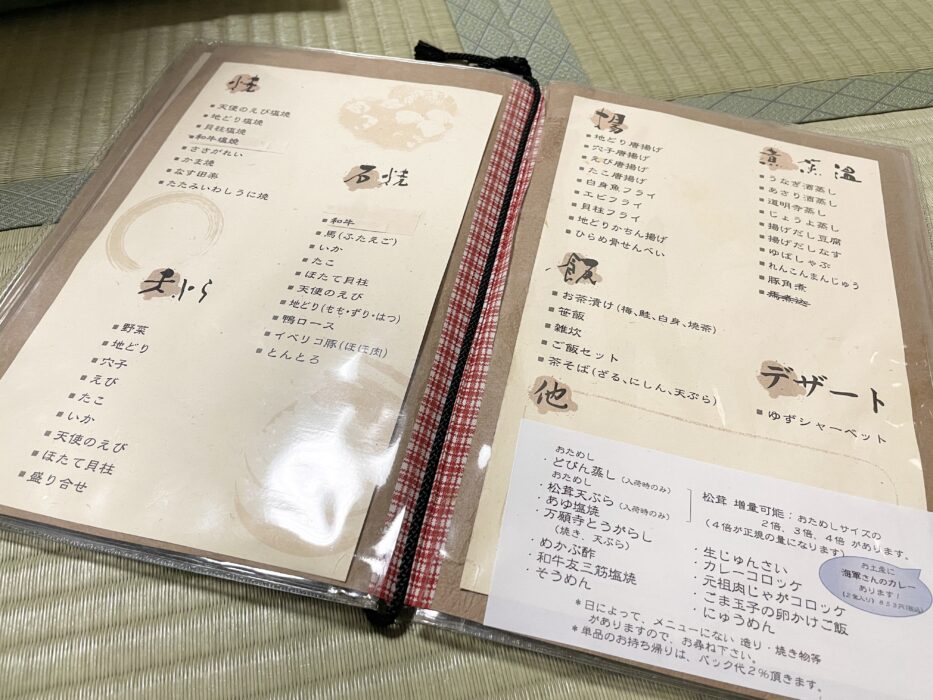 焼
天使のえび塩焼
地どり塩焼
貝柱塩焼
和牛塩焼
ささがれい
かま焼
なす田楽
たたみいわしうに焼
石焼
和牛
馬(ふたえご)
いか
たこ
ほたて貝柱
天使のえび
地どり(もも・ずり・はつ)
鴨ロース
イベリコ豚(ほほ肉)
とんとろ
天ぷら
野菜
地どり
穴子
えび
たこ
いか
天使のえび
ほたて貝柱
盛り合せ
揚
地どり唐揚げ
穴子唐揚げ
えび唐揚げ
たこ唐揚げ
白身魚フライ
エビフライ
貝柱フライ
地どりかちん揚げ
ひらめ骨せんべい
煮 蒸 温
うなぎ酒蒸し
あさり酒蒸し
道明寺蒸し
じょうよ蒸し
揚げだし豆腐
揚げだしなす
ゆばしゃぶ
れんこんまんじゅう
豚角煮
馬煮込
飯
お茶漬け(梅、鮭、白身、焼茶)
笹飯
雑炊
ご飯セット
茶そば(ざる、にしん、天ぷら)
デザート
ゆずシャーベット
他
おためし
・どびん蒸し(入荷時のみ)
おためし
・松茸天ぷら(入荷時のみ)
・あゆ塩焼
・万願寺とうがらし
(焼き、天ぷら)
・めかぶ酢
・和牛友三筋塩焼
・そうめん
松茸 増量可能:おためしサイズの
2倍、3倍、4倍 があります、
(4倍が正規の量になります)
・生じゅんさい
・カレーコロッケ
・元祖肉じゃがコロッケ
・ごま玉子の卵かけご飯
・にゅうめん
お土産に
海軍さんのカレー
あります!
(2食入り)853円(税込)
*日によって、メニューにない 造り・焼き物等
がありますので、お尋ね下さい。
*単品のお持ち帰りは、パック代2%頂きます。